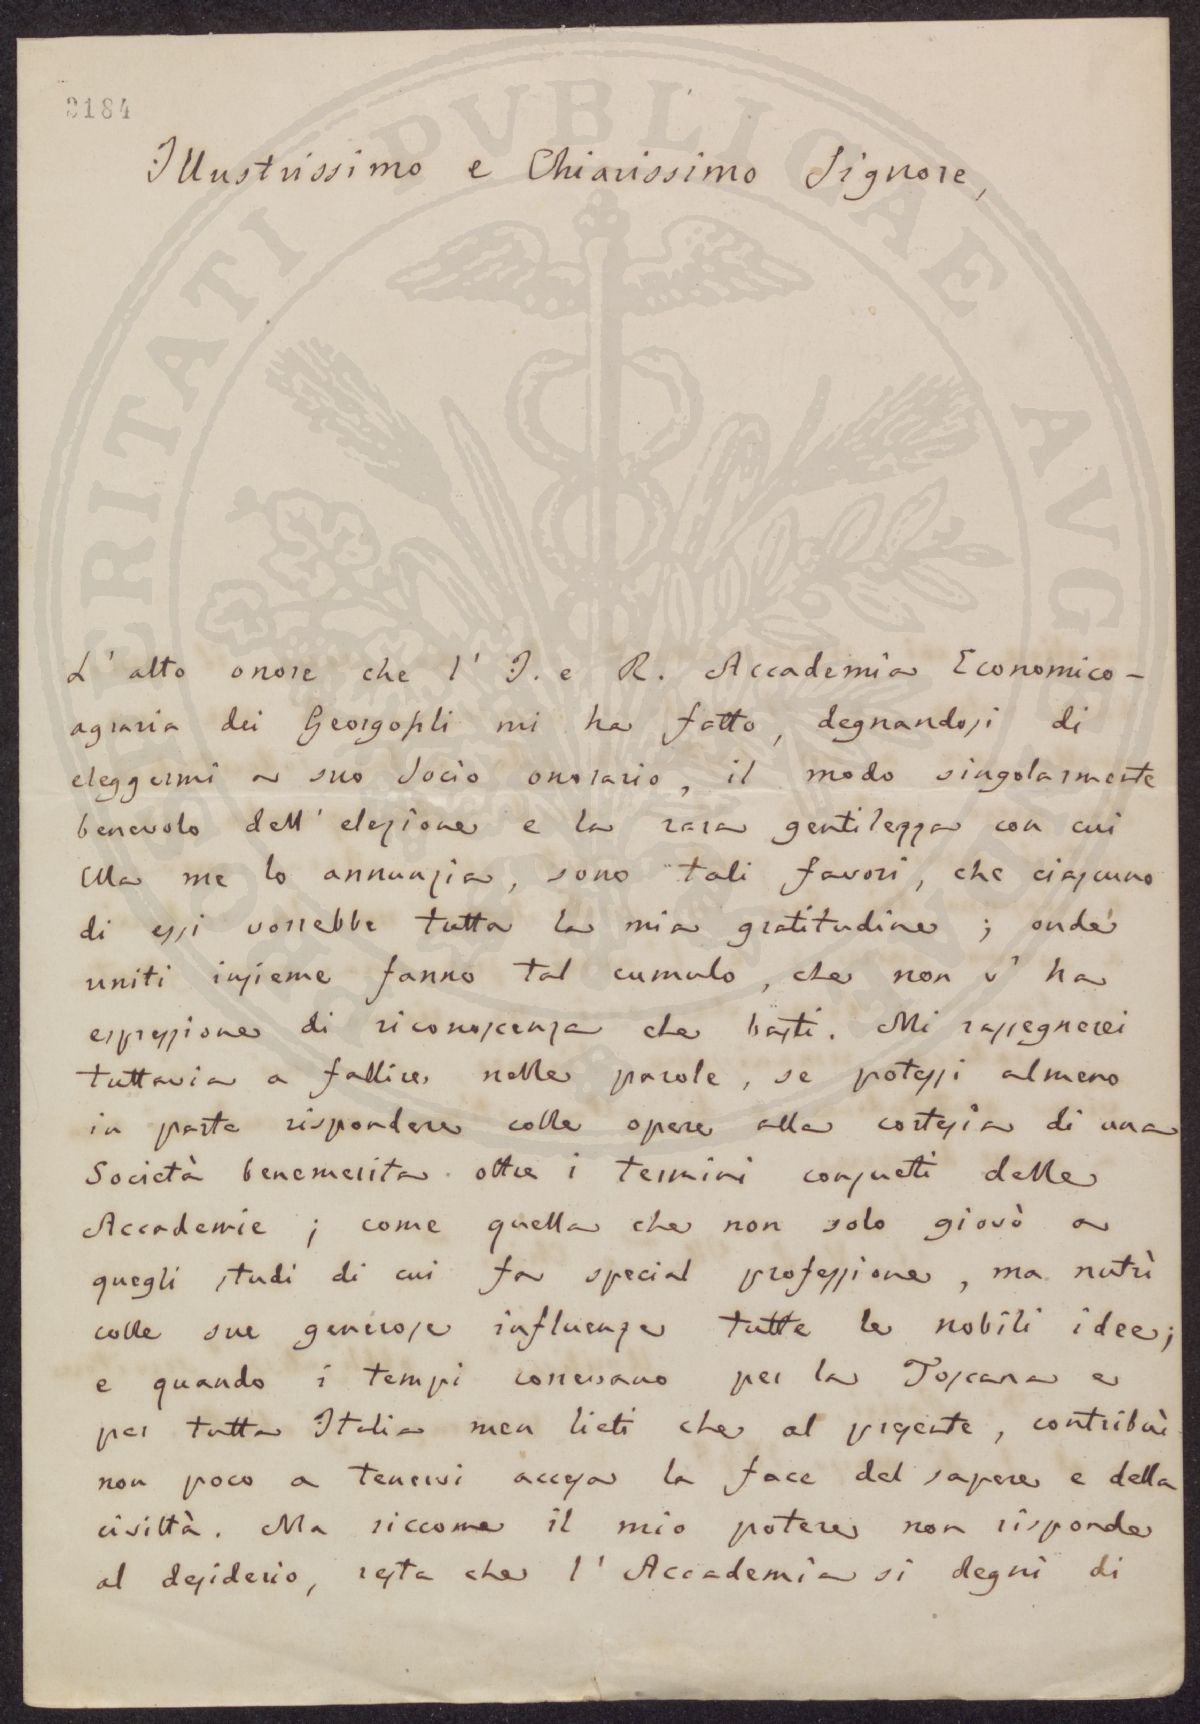 2184
Illustrissimo e Chiarissimo Signore,
L'alto onore che l'I. e R. Accademia Economico-
agraria dei Georgofili mi ha fatto, degnandosi di
eleggermi a suo Socio onorario, il modo singolarmente
benevolo dell'elezione e la rara gentilezza con cui
Ella me lo annunzia, sono tali favori, che ciascuno
di essi vorrebbe tutta la mia gratitudine; onde
uniti insieme fanno tal cumulo, che non v'ha
espressione di riconoscenza che basti. Mi rassegnerei
tuttavia a fallire nelle parole, se potessi almeno
in parte rispondere colle opere alla cortesia di una
Società benemerita oltre i termini consueti delle
Accademie; come quella che non solo giovò a
quegli studi di cui fa special professione, ma nutrì
colle sue generose influenze tutte le nobili idee;
e quando i tempi correvano per la Toscana e
per tutta Italia men lieti che al presente, contribuì
non poco a tenervi accesa la face del sapere e della
civiltà. Ma siccome il mio potere non risponde
al desiderio, resta che l'Accademia si degni di
VERITATI PVBLICAE AVG